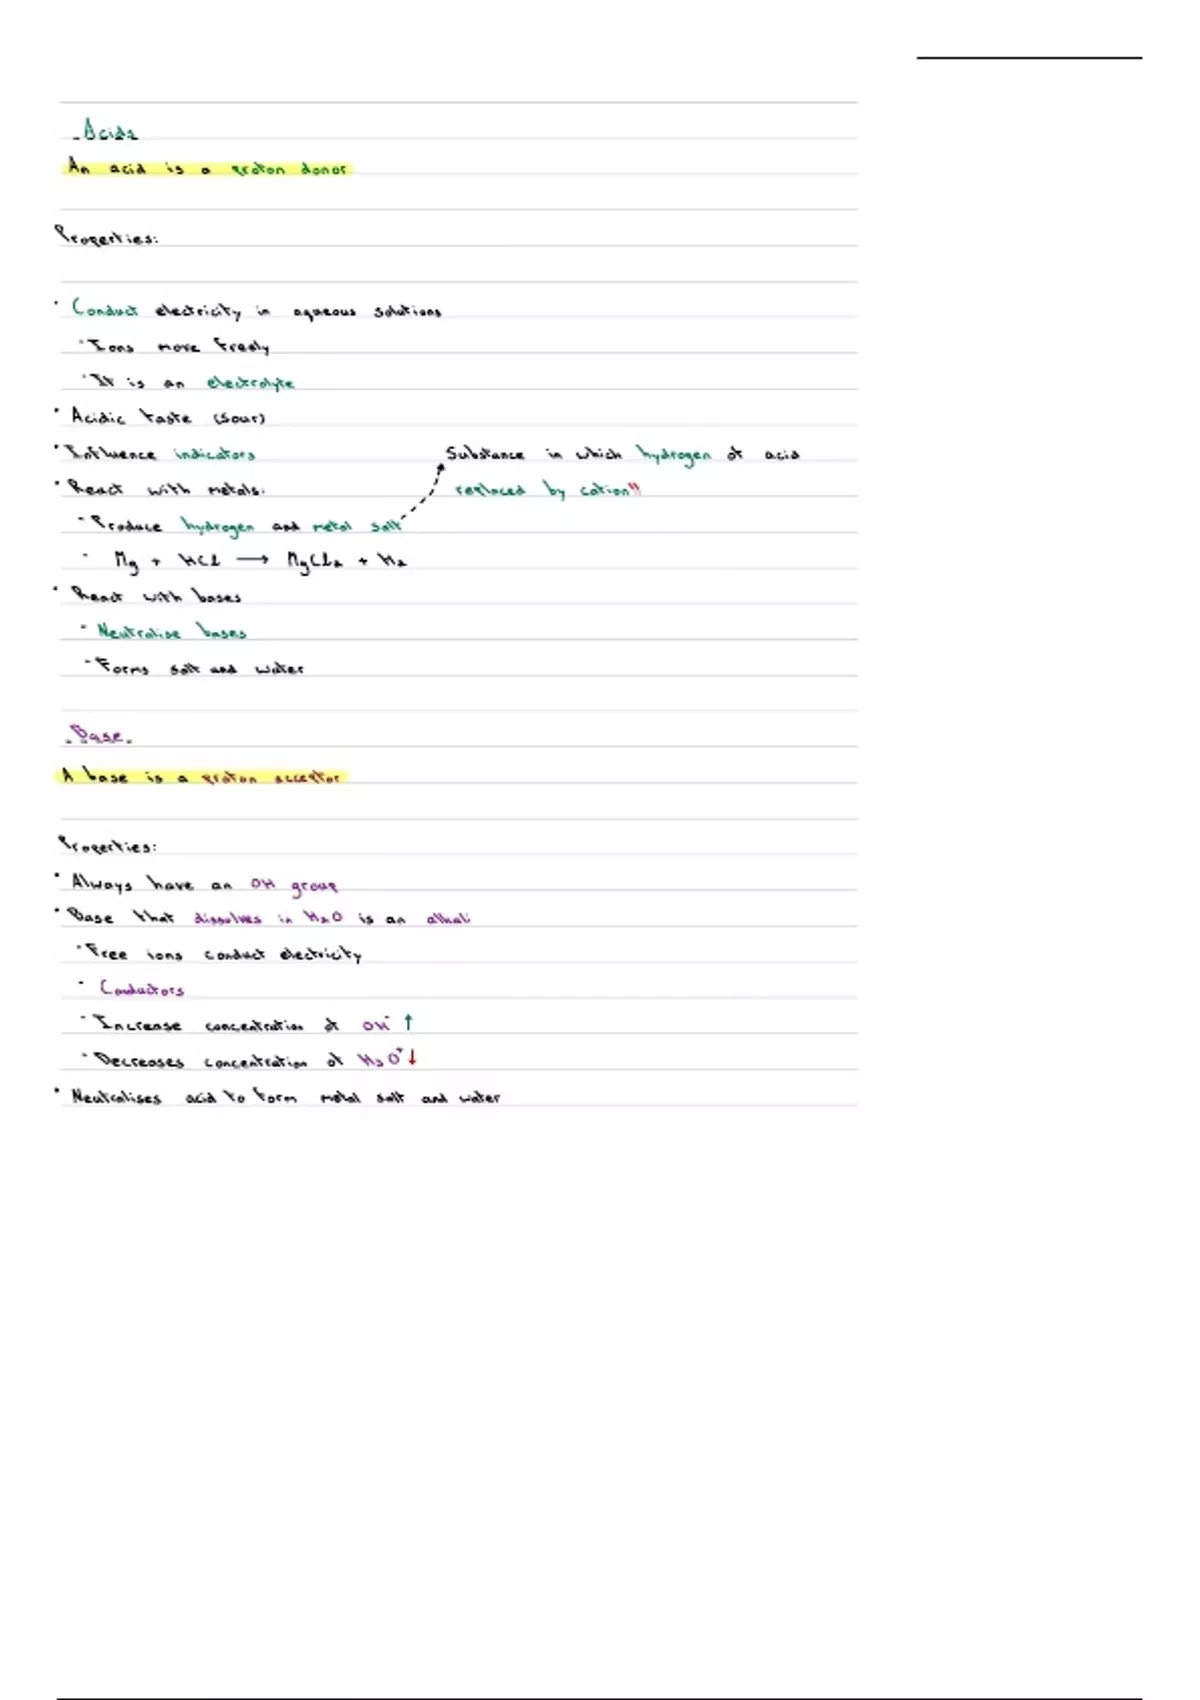 Acids
An acid is a proton donor
Properties:
• Conduct electricity in aqueous solutions
• Ions move freely
• It is an electrolyte
• Acidic taste (sour)
• Influence indicators
Substance in which hydrogen of acid
replaced by cation!!
• React with metals:
- Produce hydrogen and metal salt
- Mg + HCl → MgCl₂ + H₂
• React with bases
- Neutralise bases
- Forms salt and water
Base
A base is a proton acceptor
Properties:
• Always have an OH group
• Base that dissolves in H₂O is an alkali
• Free ions conduct electricity
- Conductors
- Increase concentration of OH⁻ ↑
- Decreases concentration of H₃O⁺ ↓
• Neutralises acid to form metal salt and water